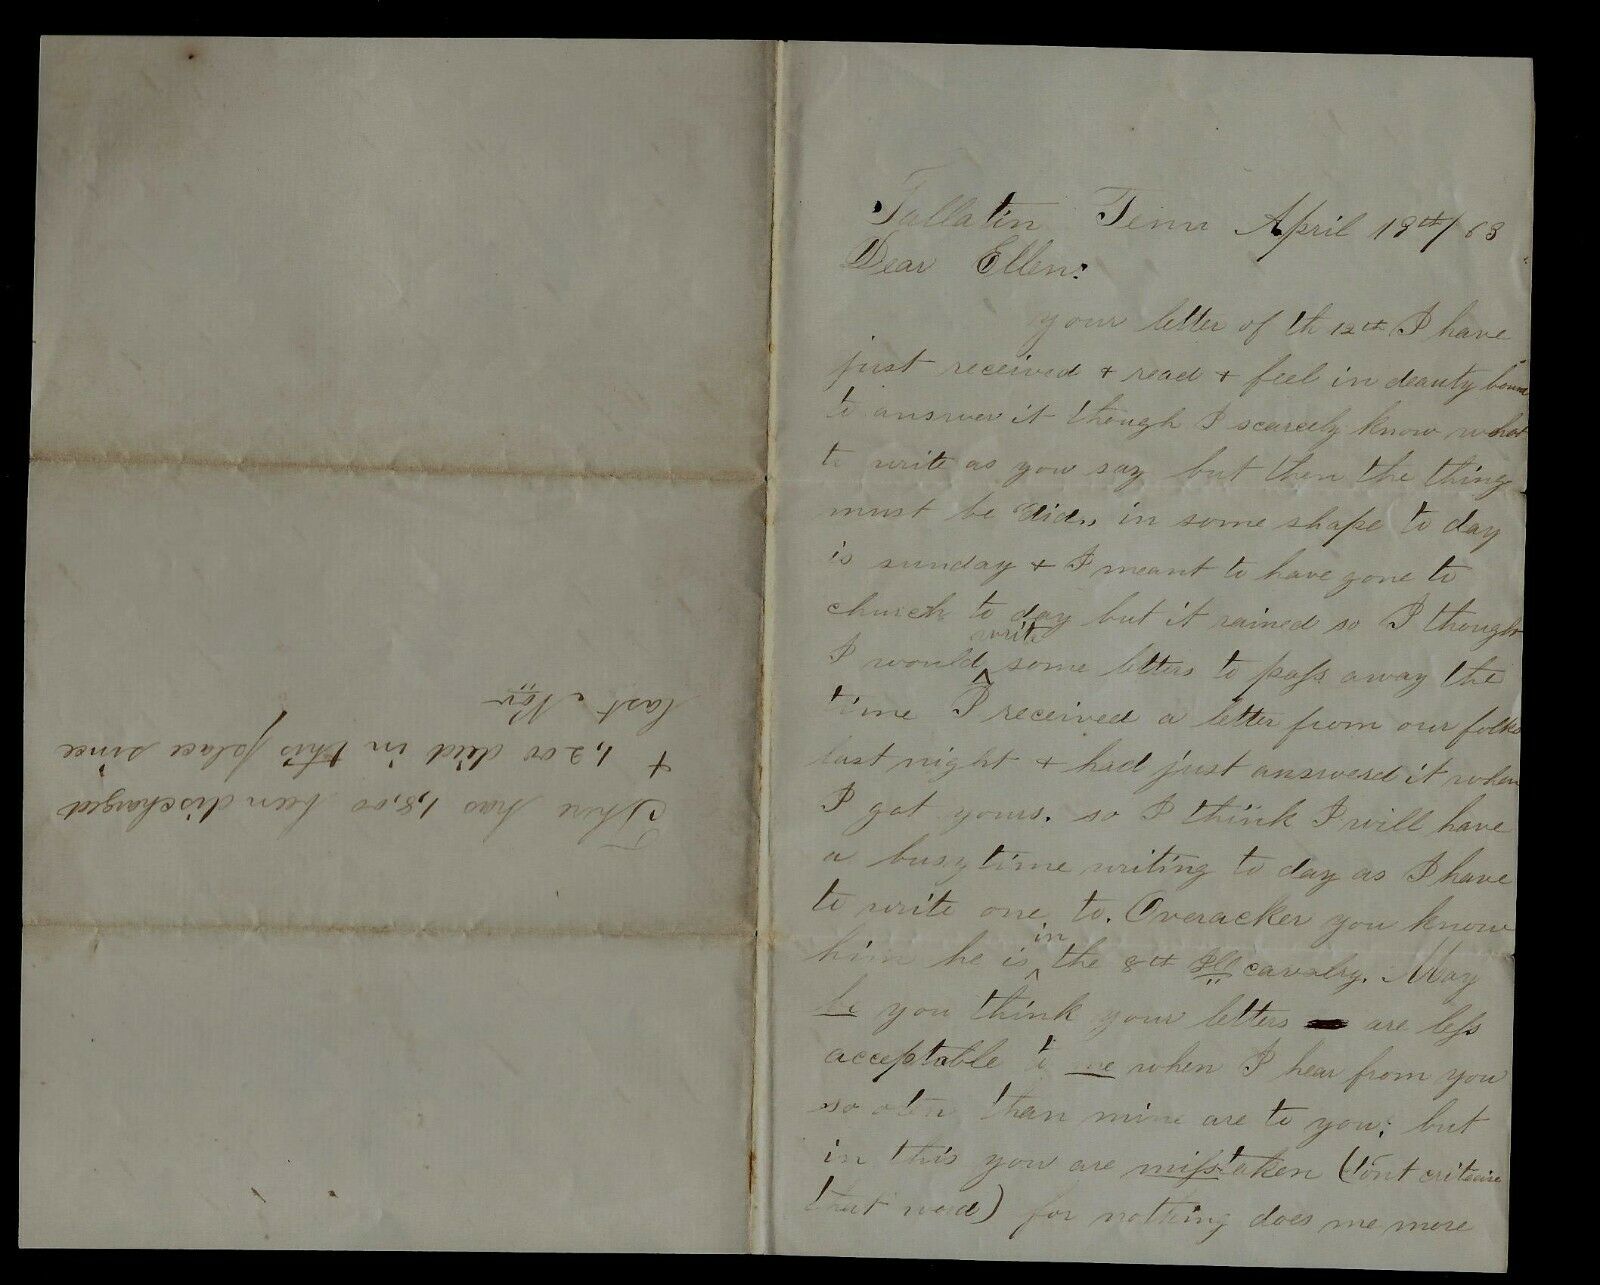 Gallatin Tenn April 19th/63
Dear Ellen:
your letter of th 12th I have
just received + read + feel in deauty bound
to answer it though I scarcely know what
to write as you say but then the thing
must be "did" in some shape to day
is sunday + I meant to have gone to
church to day but it rained so I though
I would write some letters to pass away the
time I received a letter from our folks
last night + had just answered it when
I got yours. so I think I will have
a busy time writing to day as I have
to write one to. Overacker you know
him he is in the 8th cavalry. May
be you think your letters are less
acceptable to me when I hear from you
so oten than mine are to you; but
in this you are misstaken (dont criticise
that word) for nothing does me more
There has 1,8,00 been discharged
+ 1,200 died in this place since
last Nov